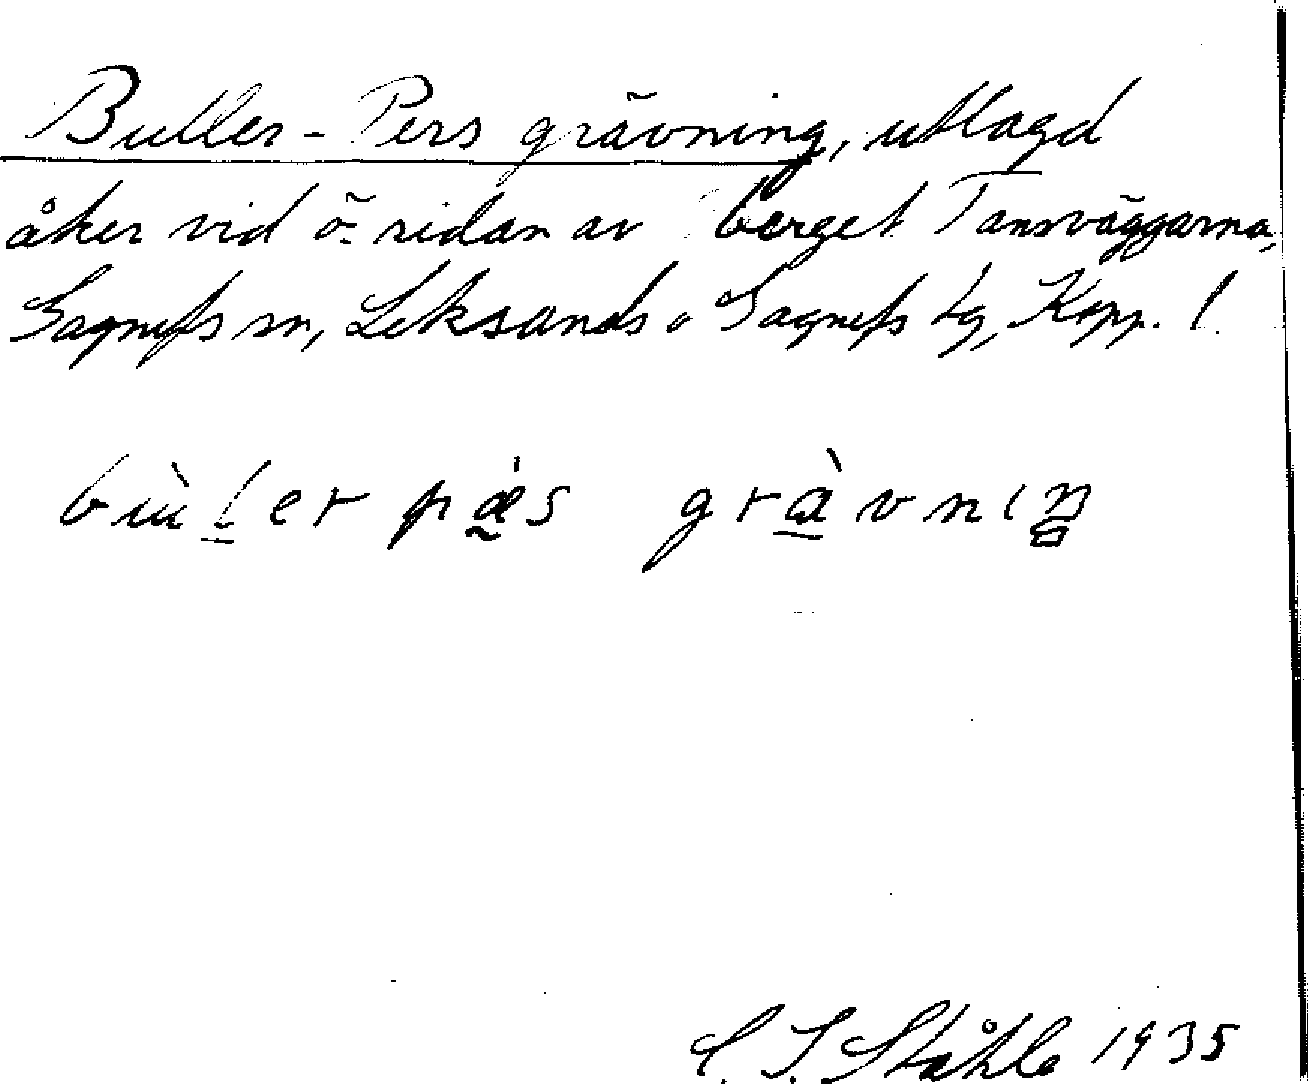 Buller-Pers grävning, utlagd
åker vid ö-sidan av berget Tansväggarna,
Gagnefs sn, Leksands o Gagnefs tg, Kopp. l.
grävning
C. I. Ståhle 1935